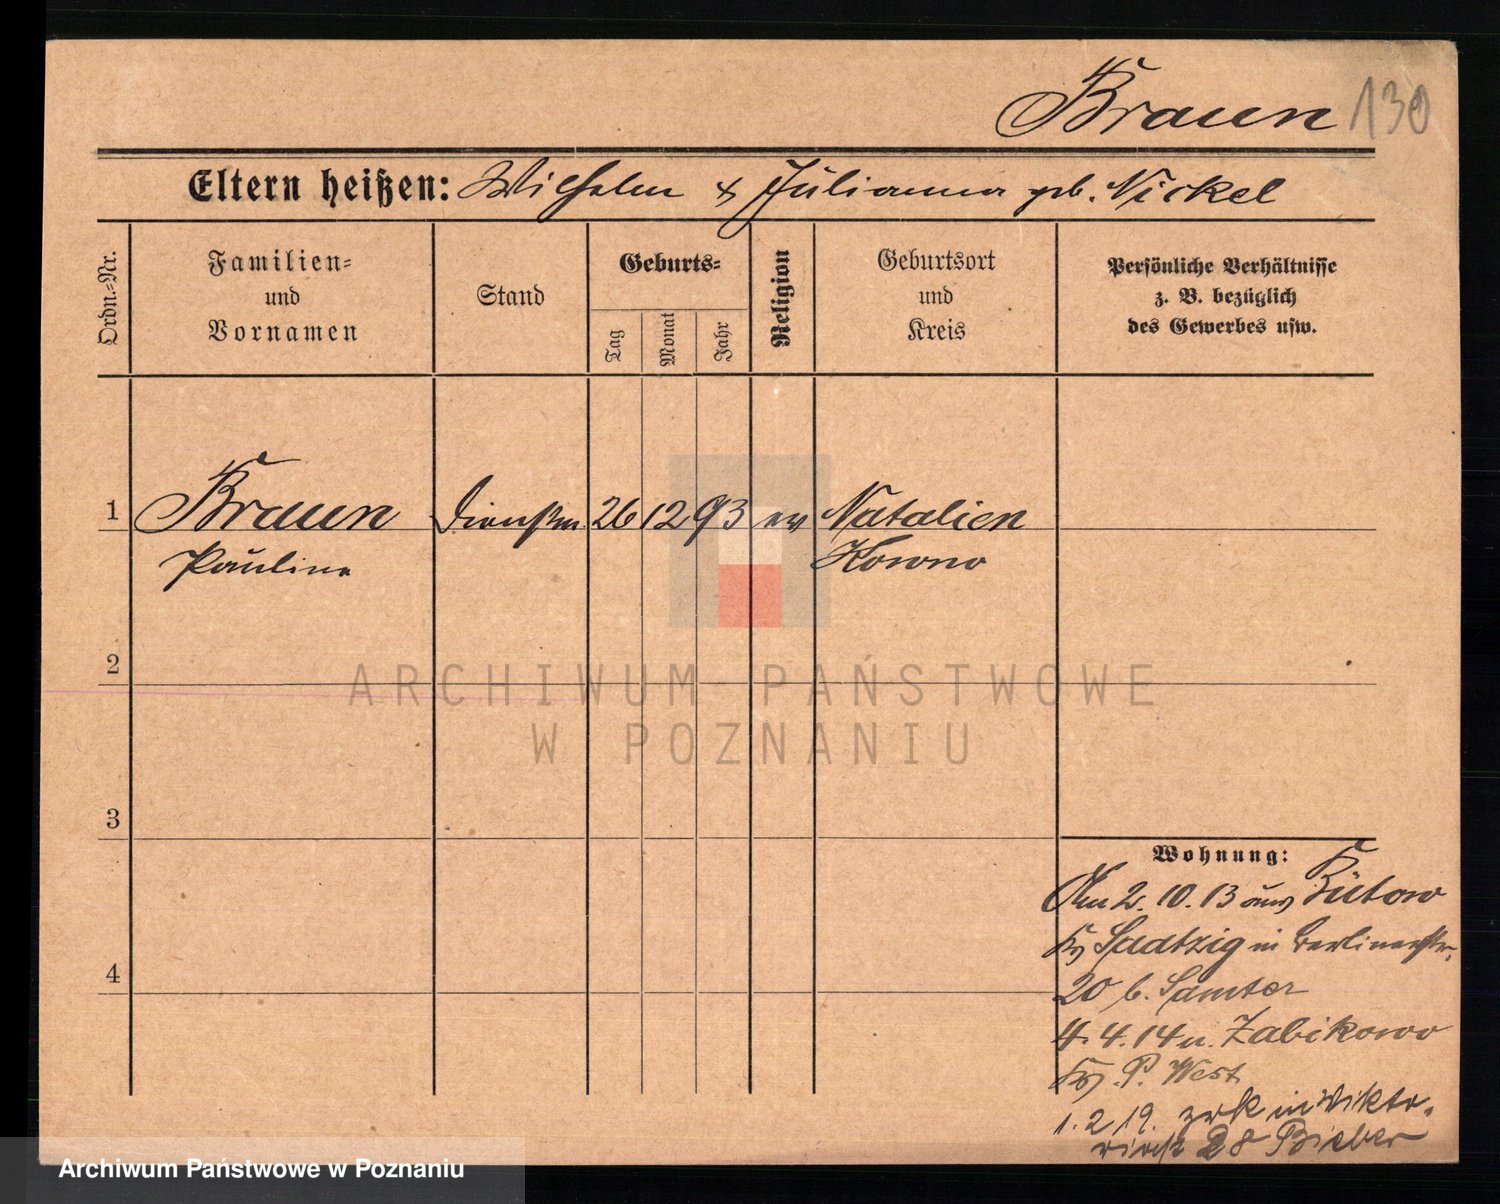 Braun 130
Eltern heißen: Wilhelm & Julianna geb. Nickel
Ordn.-Nr.
Familien-
und
Vornamen
Stand
Geburts-
Tag
Monat
Jahr
Religion
Geburtsort
und
Kreis
Persönliche Verhältnisse
z. B. bezüglich
des Gewerbes usw.
1 Braun Dienstm 26 12 93 ev Natalien
Pauline Kowno
2
3
4
Wohnung:
Am 2. 10. 13 aus Bütow
Kr in Berlinerstr.
20 b. Samter
4. 4. 14 n. Zabikowo
Kr P. West
1. 2 19. zrk in Wikto-
riast 28 Bieber
ARCHIWUM PAŃSTWOWE
W POZNANIU
Archiwum Państwowe w Poznaniu